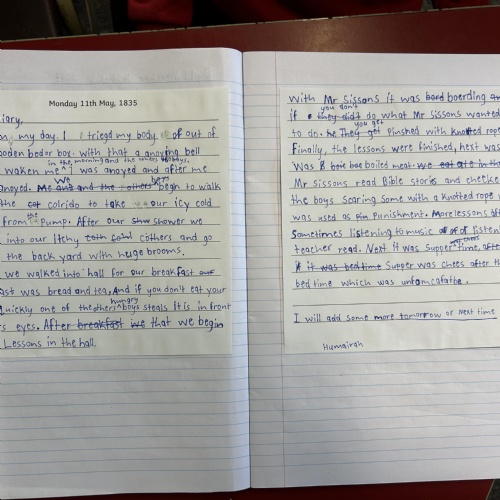 Monday 11th May, 1835
iary,
my day. I triegd my body of out of
ooden bed or boy. with that a anoying bell
in the morning and the others boys.
waken me I was anoyed and after me
We boys
anoyed. Me and and the others begin to walk
the cot colrido to take our icy cold
the
from Pump. After our Show shower we
into our Itchy cothers and go
the back yard with huge brooms.
we walked into hall for our breakfast our
ast was bread and tea. And if you don't eat your
hungry
uickly one of the others boys steals it is in front
s eyes. After breakfast we that we begin
Lessons in the hall.
With Mr Sissons it was bord boerding
you don't
if they didt do what Mr Sissons wanted
you get
to do. He They get Pinshed with Knotted rope
Finally, the lessons were finished, next was
Was boiled meat. we eat ate in the
Mr Sissons read Bible stories and checke
the boys scaring some with a Knotted rope
was used as Pin Punishment. More lessons af
Sometimes listening to music of of listeni
teacher read. Next it was Supper time, afte
it was bedtime Supper was chees after th
bedtime which was unfamcatable.
I will add some more tomorrow or Next time
Humairah